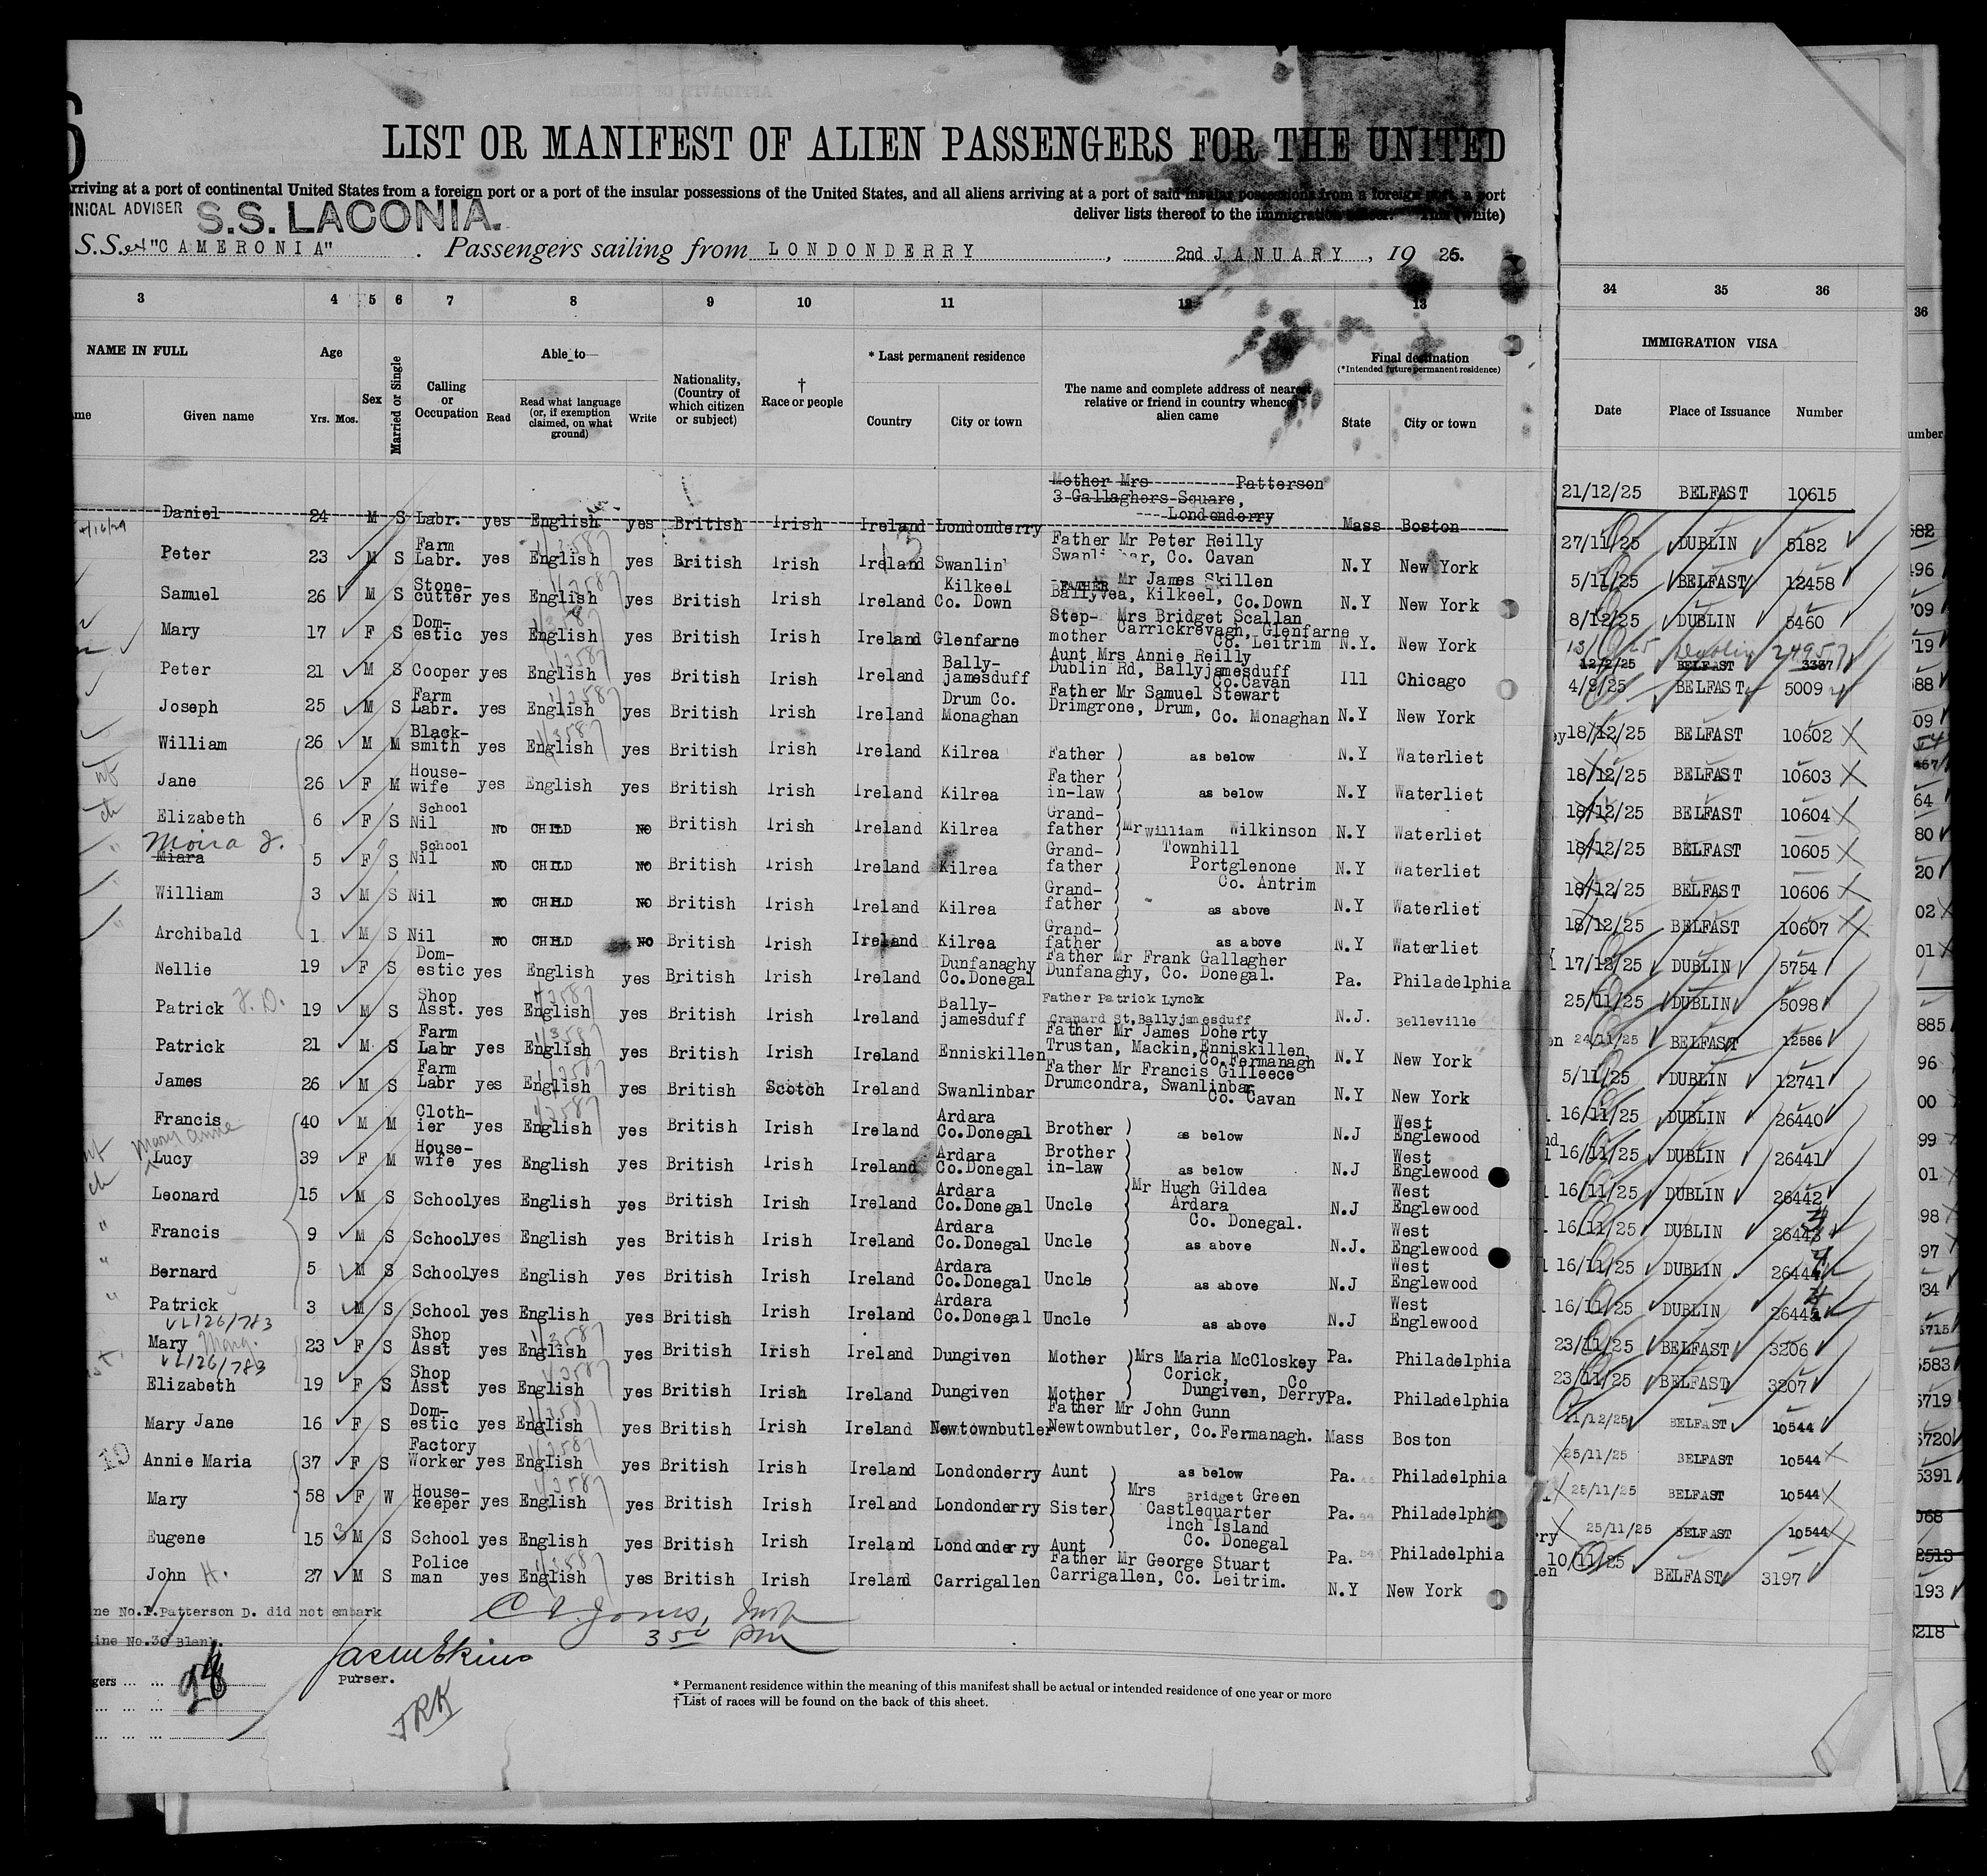 LIST OR MANIFEST OF ALIEN PASSENGERS FOR THE UNITED
rriving at a port of continental United States from a foreign port or a port of the insular possessions of the United States, and all aliens arriving at a port of said insular possessions from a foreign port, a port
deliver lists thereof to the immigration This (white)
NICAL ADVISER S.S. LACONIA.
S.S. "CAMERONIA" Passengers sailing from LONDONDERRY, 2nd JANUARY, 19 26.
3 4 5 6 7 8 9 10 11 12 13 34 35 36 36
NAME IN FULL Age Sex Married or Single Calling or Occupation Able to Nationality, (Country of which citizen or subject) † Race or people * Last permanent residence The name and complete address of nearest relative or friend in country whence alien came Final destination (*Intended future permanent residence) IMMIGRATION VISA
me Given name Yrs. Mos. Read Read what language (or, if exemption claimed, on what ground) Write Country City or town State City or town Date Place of Issuance Number umber
Daniel 24 M S Labr. yes English yes British Irish Ireland Londonderry Mother Mrs Patterson 3 Gallaghers Square, Londonderry Mass Boston 21/12/25 BELFAST 10615
Peter 23 M S Farm Labr. yes English yes British Irish Ireland Swanlin Father Mr Peter Reilly Swanli bar, Co. Cavan N.Y New York 27/11/25 DUBLIN 5182
Samuel 26 M S Stone-cutter yes English yes British Irish Ireland Kilkeel Co. Down FATHER Mr James Skillen Ballyvea, Kilkeel, Co.Down N.Y New York 5/11/25 BELFAST 12458
Mary 17 F S Dom-estic yes English yes British Irish Ireland Glenfarne Step-mother Mrs Bridget Scallan Carrickrevagh, Glenfarne Co. Leitrim N.Y. New York 8/12/25 DUBLIN 5460
Peter 21 M S Cooper yes English yes British Irish Ireland Bally-jamesduff Aunt Mrs Annie Reilly Dublin Rd, Ballyjamesduff Co.Cavan Ill Chicago Dublin 24957 12/2/25 BELFAST 3337
Joseph 25 M S Farm Labr. yes English yes British Irish Ireland Drum Co. Monaghan Father Mr Samuel Stewart Drimgrone, Drum, Co. Monaghan N.Y New York 4/9/25 BELFAST 5009
William 26 M M Black-smith yes English yes British Irish Ireland Kilrea Father as below N.Y Waterliet 18/12/25 BELFAST 10602
Jane 26 F M House-wife yes English yes British Irish Ireland Kilrea Father in-law as below N.Y Waterliet 18/12/25 BELFAST 10603
Elizabeth 6 F S School Nil NO CHILD NO British Irish Ireland Kilrea Grand-father Mr William Wilkinson N.Y Waterliet 18/12/25 BELFAST 10604
Moira J.
Miara 5 F S School Nil NO CHILD NO British Irish Ireland Kilrea Grand-father Townhill Portglenone Co. Antrim N.Y Waterliet 18/12/25 BELFAST 10605
William 3 M S Nil NO CHILD NO British Irish Ireland Kilrea Grand-father as above N.Y Waterliet 18/12/25 BELFAST 10606
Archibald 1 M S Nil NO CHILD NO British Irish Ireland Kilrea Grand-father as above N.Y Waterliet 18/12/25 BELFAST 10607
Nellie 19 F S Dom-estic yes English yes British Irish Ireland Dunfanaghy Co.Donegal Father Mr Frank Gallagher Dunfanaghy, Co. Donegal. Pa. Philadelphia 17/12/25 DUBLIN 5754
Patrick 19 M S Shop Asst. yes English yes British Irish Ireland Bally-jamesduff Father Patrick Lynch Granard St. Ballyjamesduff N.J. Belleville 25/11/25 DUBLIN 5098
Patrick 21 M S Farm Labr yes English yes British Irish Ireland Enniskillen Father Mr James Doherty Trustan, Mackin, Enniskillen Co.Fermanagh N.Y New York 24/11/25 BELFAST 12586
James 26 M S Farm Labr yes English yes British Scotch Ireland Swanlinbar Father Mr Francis Gilleece Drumcondra, Swanlinbar Co. Cavan N.Y New York 5/11/25 DUBLIN 12741
Francis 40 M M Cloth-ier yes English yes British Irish Ireland Ardara Co.Donegal Brother as below N.J West Englewood 16/11/25 DUBLIN 26440
Mary Anne
Lucy 39 F M House-wife yes English yes British Irish Ireland Ardara Co.Donegal Brother in-law as below N.J West Englewood 16/11/25 DUBLIN 26441
Leonard 15 M S School yes English yes British Irish Ireland Ardara Co.Donegal Uncle Mr Hugh Gildea Ardara Co. Donegal. N.J West Englewood 16/11/25 DUBLIN 26442
Francis 9 M S School yes English yes British Irish Ireland Ardara Co.Donegal Uncle as above N.J. West Englewood 16/11/25 DUBLIN 26443
Bernard 5 M S School yes English yes British Irish Ireland Ardara Co.Donegal Uncle as above N.J West Englewood 16/11/25 DUBLIN 26444
Patrick 3 M S School yes English yes British Irish Ireland Ardara Co.Donegal Uncle as above N.J West Englewood 16/11/25 DUBLIN
VL126/783
Mary 23 F S Shop Asst yes English yes British Irish Ireland Dungiven Mother Mrs Maria McCloskey Pa. Philadelphia 23/11/25 BELFAST 3206
VL126/783
Elizabeth 19 F S Shop Asst yes English yes British Irish Ireland Dungiven Mother Corick, Co Dungiven, Derry Pa. Philadelphia 23/11/25 BELFAST 3207
Mary Jane 16 F S Dom-estic yes English yes British Irish Ireland Newtownbutler Father Mr John Gunn Newtownbutler, Co.Fermanagh. Mass Boston 11/12/25 BELFAST 10544
Annie Maria 37 F S Factory Worker yes English yes British Irish Ireland Londonderry Aunt as below Pa. Philadelphia 25/11/25 BELFAST 10544
Mary 58 F W House-keeper yes English yes British Irish Ireland Londonderry Sister Mrs Bridget Green Castlequarter Inch Island Co. Donegal Pa. Philadelphia 25/11/25 BELFAST 10544
Eugene 15 3 M S School yes English yes British Irish Ireland Londonderry Aunt Pa. Philadelphia 25/11/25 BELFAST 10544
John H. 27 M S Police man yes English yes British Irish Ireland Carrigallen Father Mr George Stuart Carrigallen, Co. Leitrim. N.Y New York 10/11/25 BELFAST 3197
ne No.1. Patterson D. did not embark
ine No.30 Blank.
350 Pm
gers ... ...
Purser.
JRK
* Permanent residence within the meaning of this manifest shall be actual or intended residence of one year or more
† List of races will be found on the back of this sheet.